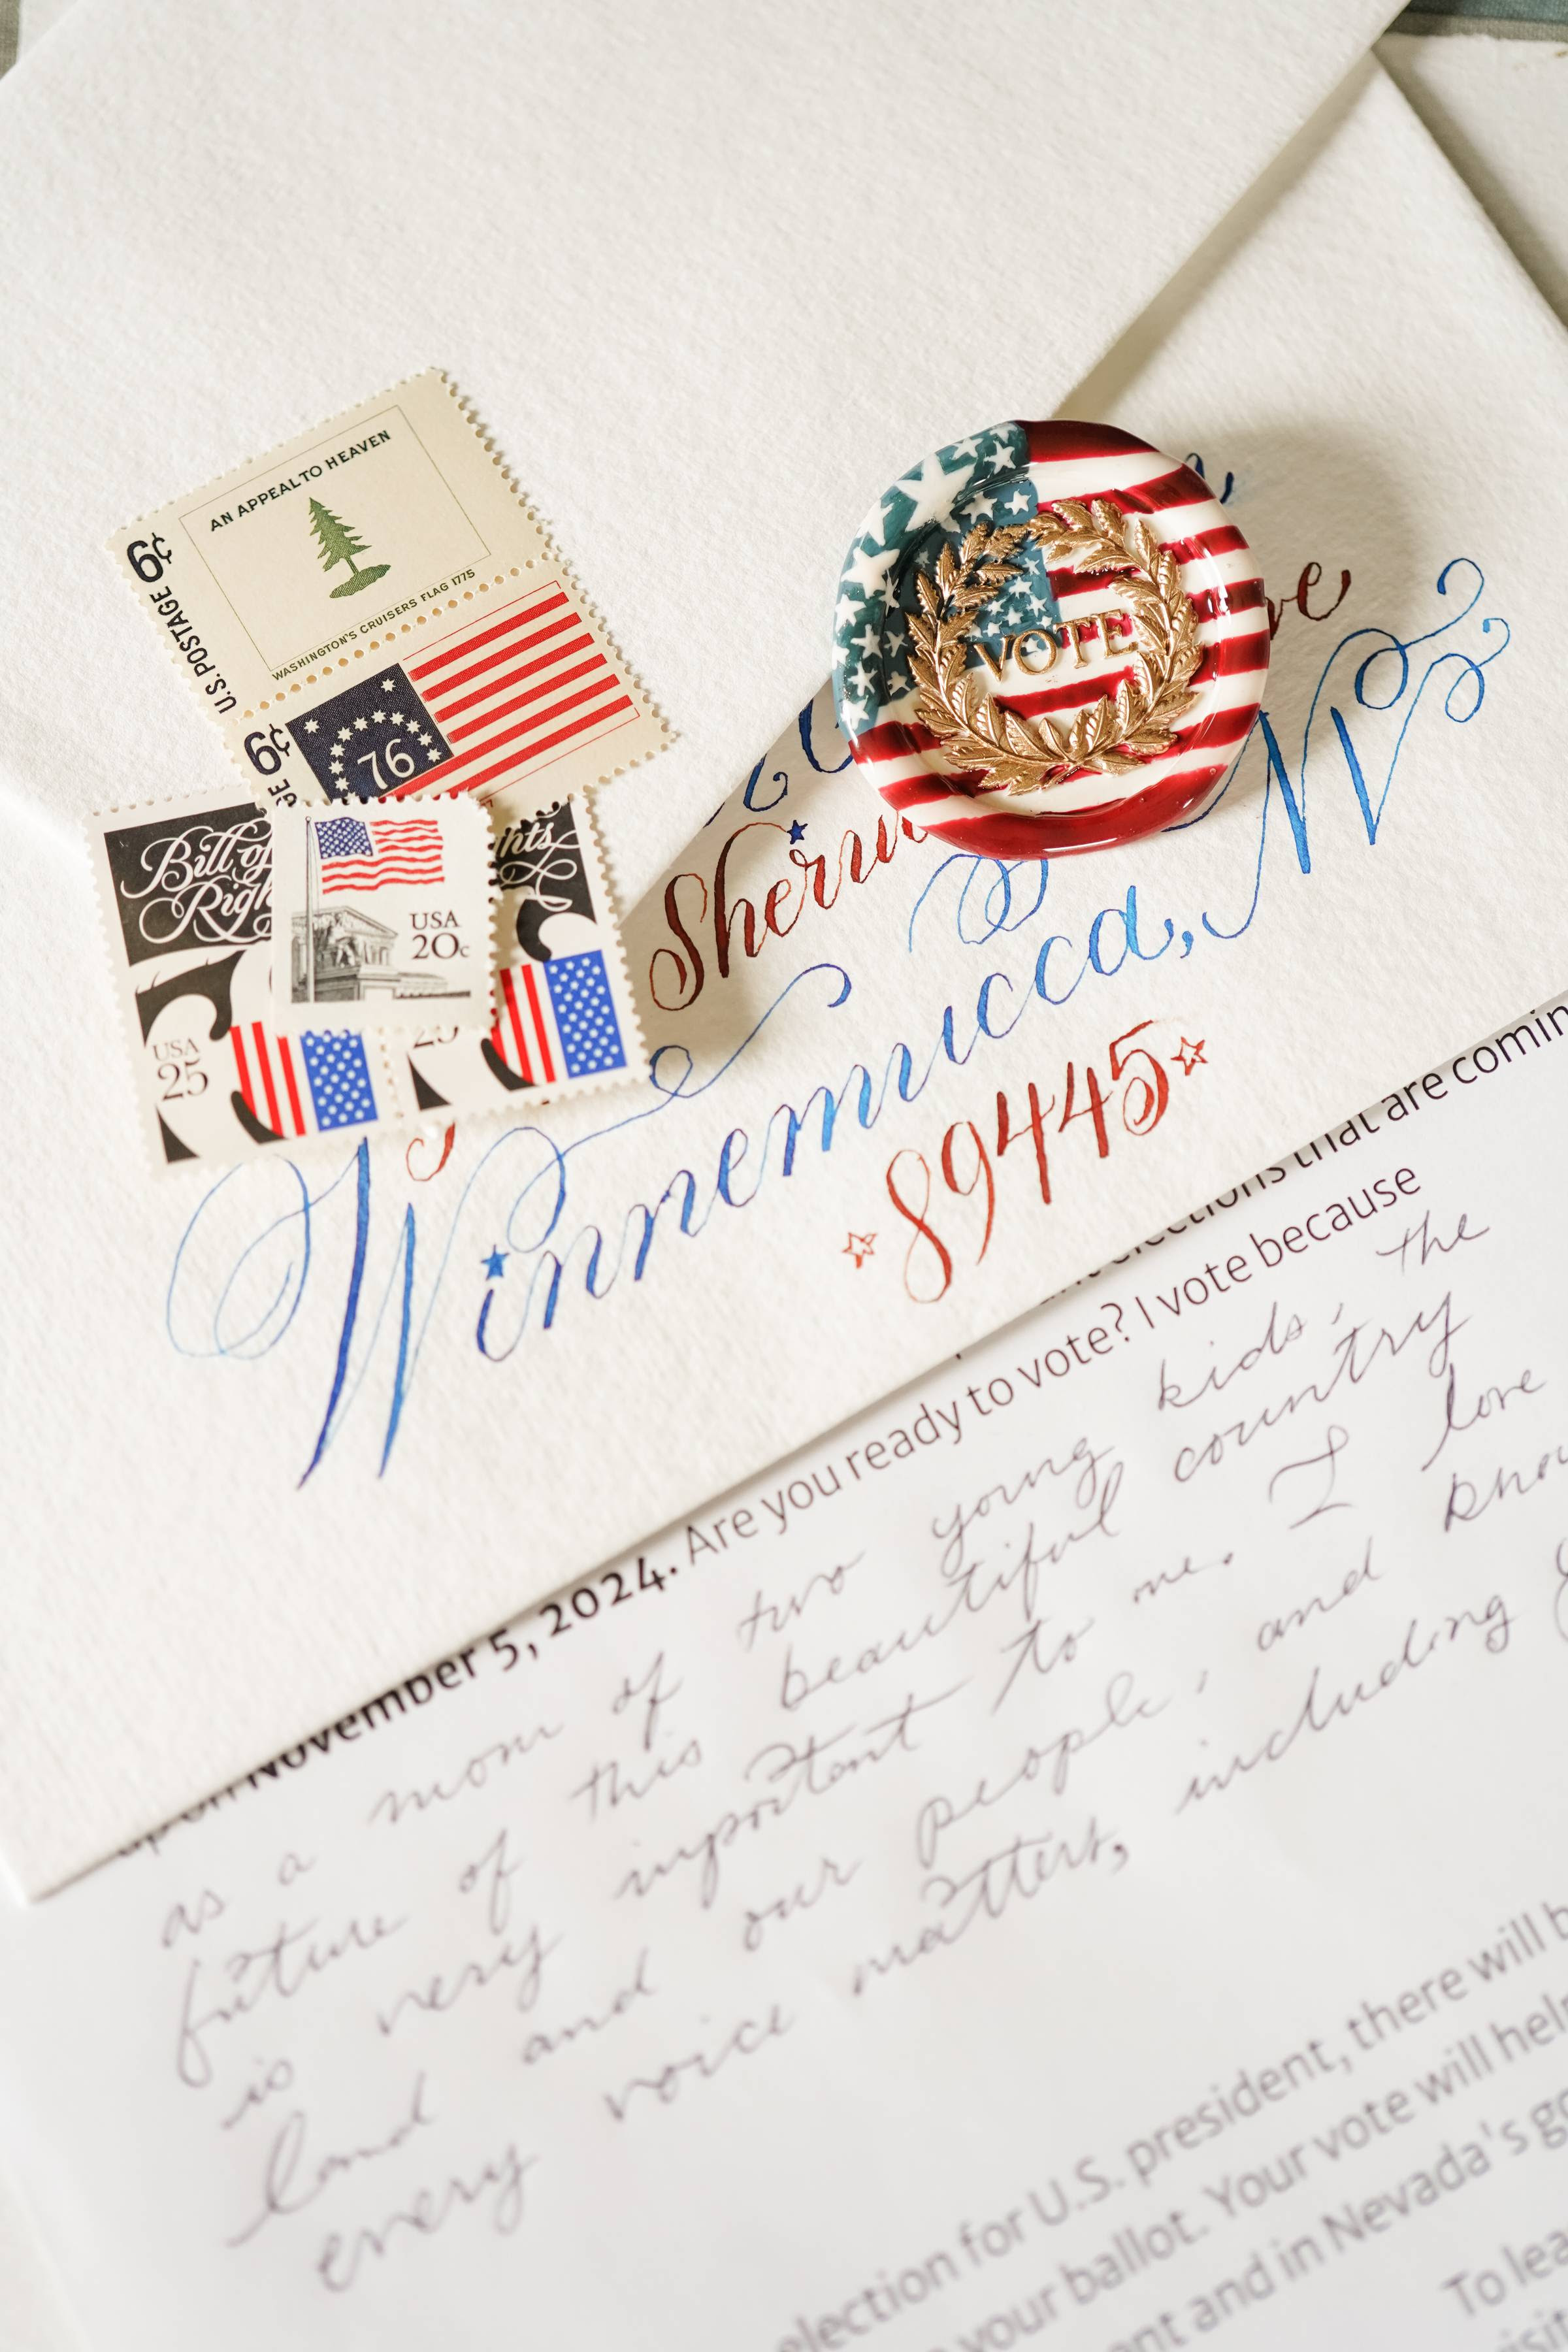 AN APPEAL TO HEAVEN
WASHINGTON'S CRUISERS FLAG 1775
U.S. POSTAGE 6¢
76
6¢
Bill of
Righ
hts
USA
25
USA
20c
25
VOTE
ve
Sherm
Winnemucca, NV
89445
elections that are comin
upon November 5, 2024. Are you ready to vote? I vote because
as a mom of two young kids, the
future of this beautiful country
is very important to me. I love
land and our people, and know
every voice matters, including
election for U.S. president, there will b
your ballot. Your vote will help
ent and in Nevada's go
To lea
visit